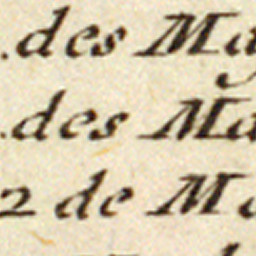 . des Ma
. des Ma
2 de Ma